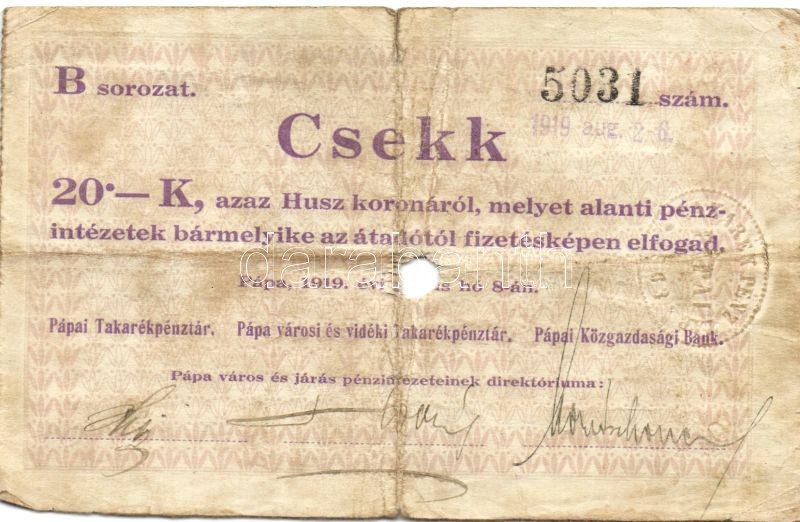 B sorozat. 5031 szám.
1919 aug. 2 6.
Csekk
20·— K, azaz Husz koronáról, melyet alanti pénz-
intézetek bármelyike az átadótól fizetésképen elfogad.
Pápa, 1919. évi hó 8-án.
Pápai Takarékpénztár. Pápa városi és vidéki Takarékpénztár. Pápai Közgazdasági Bank.
Pápa város és járás pénzintézeteinek direktóriuma:
darabanth